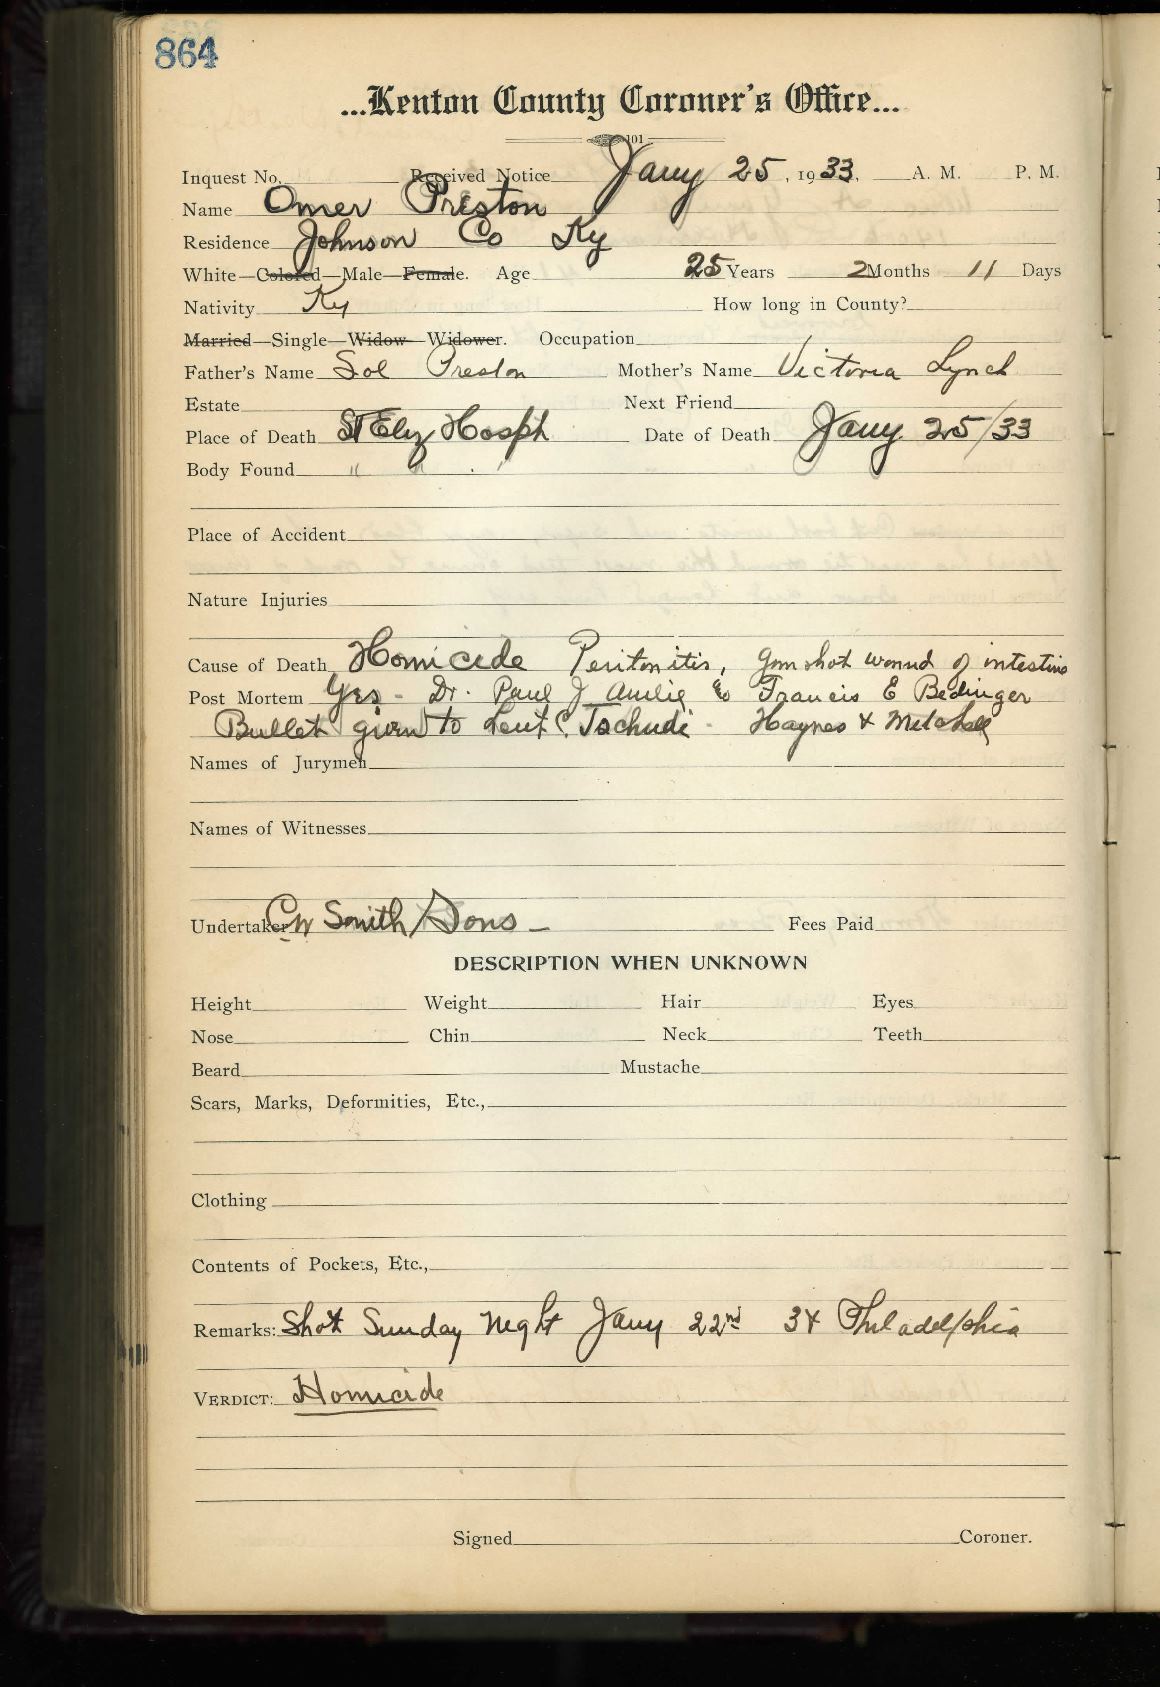 864
...Kenton County Coroner's Office...
101
Inquest No. Received Notice Jany 25, 1933. A. M. P. M.
Name Omer Preston
Residence Johnson Co Ky
White—Colored—Male—Female. Age 25 Years 2 Months 11 Days
Nativity Ky How long in County?
Married—Single—Widow—Widower. Occupation
Father's Name Sol Preston Mother's Name Victoria Lynch
Estate Next Friend
Place of Death St Eliz Hosph Date of Death Jany 25/33
Body Found " " "
Place of Accident
Nature Injuries
Cause of Death Homicide Peritonitis, gunshot wound of intestine
Post Mortem Yes - Dr. Paul J Francis E Bedinger
Bullet given to Leut C. Tschudi - Haynes & Mitchell
Names of Jurymen
Names of Witnesses
Undertaker CW Smith/Sons —
Fees Paid
DESCRIPTION WHEN UNKNOWN
Height Weight Hair Eyes
Nose Chin Neck Teeth
Beard Mustache
Scars, Marks, Deformities, Etc.,
Clothing
Contents of Pockets, Etc.,
Remarks: Shot Sunday Night Jany 22nd Philadelphia
VERDICT: Homicide
Signed Coroner.